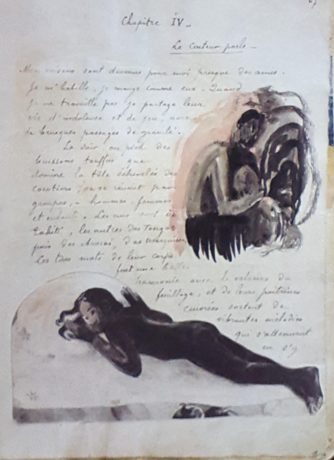 Chapitre IV.
Le conteur parle
Mes voisins sont devenus pour moi presque des amis.
Je m'habille, je mange comme eux. Quand
je ne travaille pas je partage leur
vie d'indolence et de joie, avec
de brusques passages de gravité.
Le soir, au pied des
buissons touffus que
domine la tête échevelée des
cocotiers, on se réunit par
groupes, - hommes, femmes
et enfants. Les uns sont de
Tahiti, les autres des Tongas
puis des Arorai, des Marquises.
Les tons mats de leur corps
font une belle
harmonie avec le velours du
feuillage, et de leurs poitrines
cuivrées sortent de
vibrantes mélodies
qui s'atténuent
en s'y